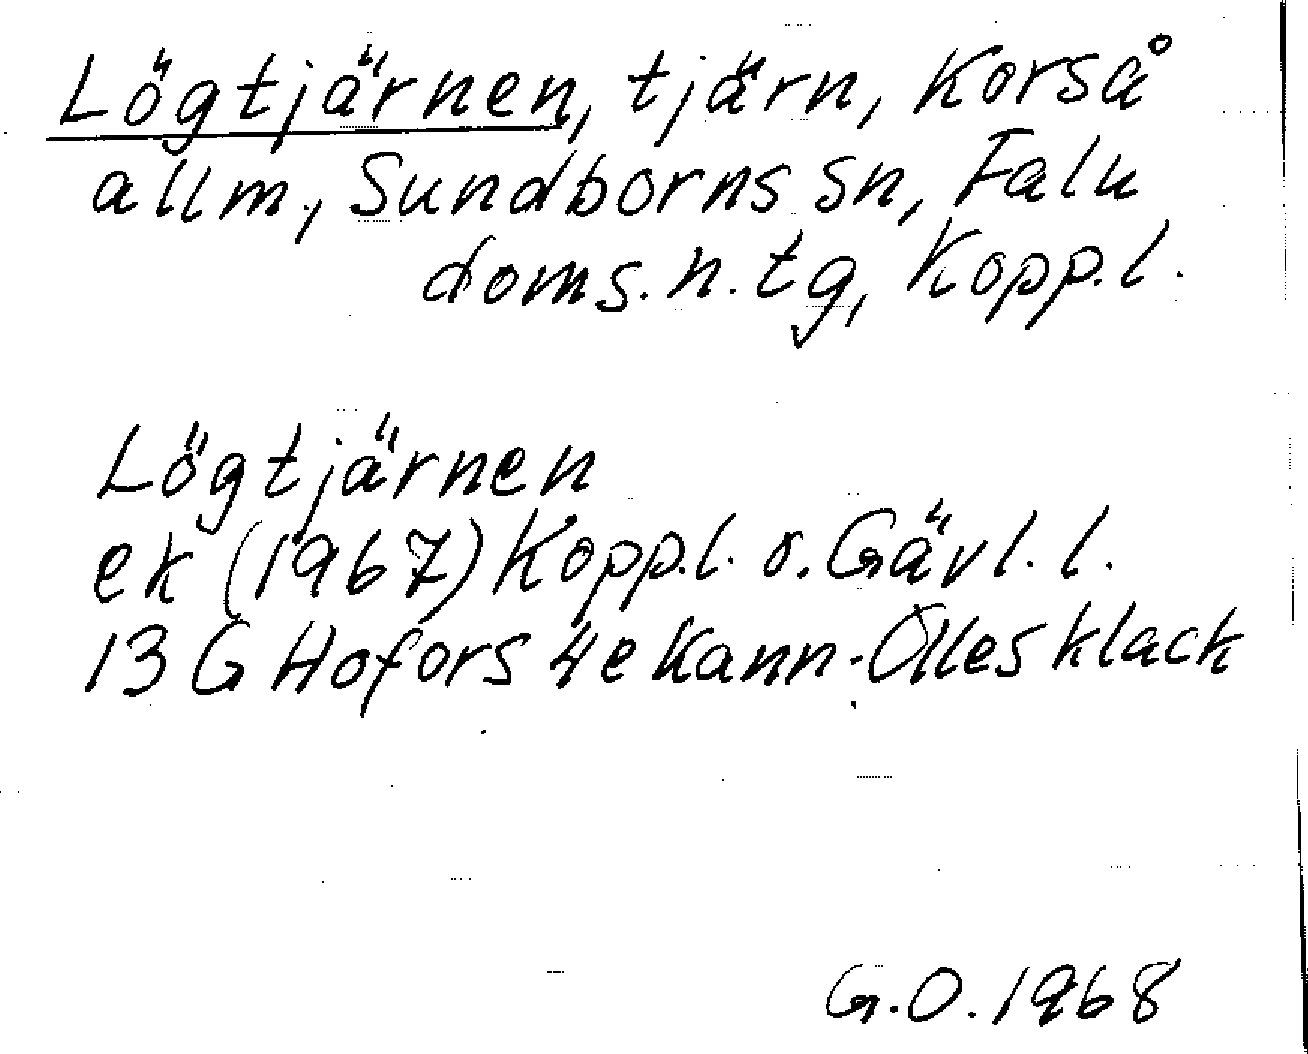 Lögtjärnen, tjärn, Korså
allm., Sundborns sn, Falu
doms.n.tg, Kopp.l.
Lögtjärnen
ek (1967) Kopp.l. o. Gävl.l.
13 G Hofors 4e Kann-Olles klack
G.O. 1968